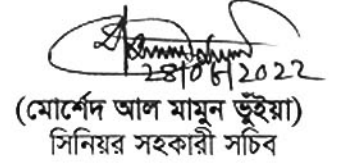 28/06/2022
(মোর্শেদ আল মামুন ভূঁইয়া)
সিনিয়র সহকারী সচিব